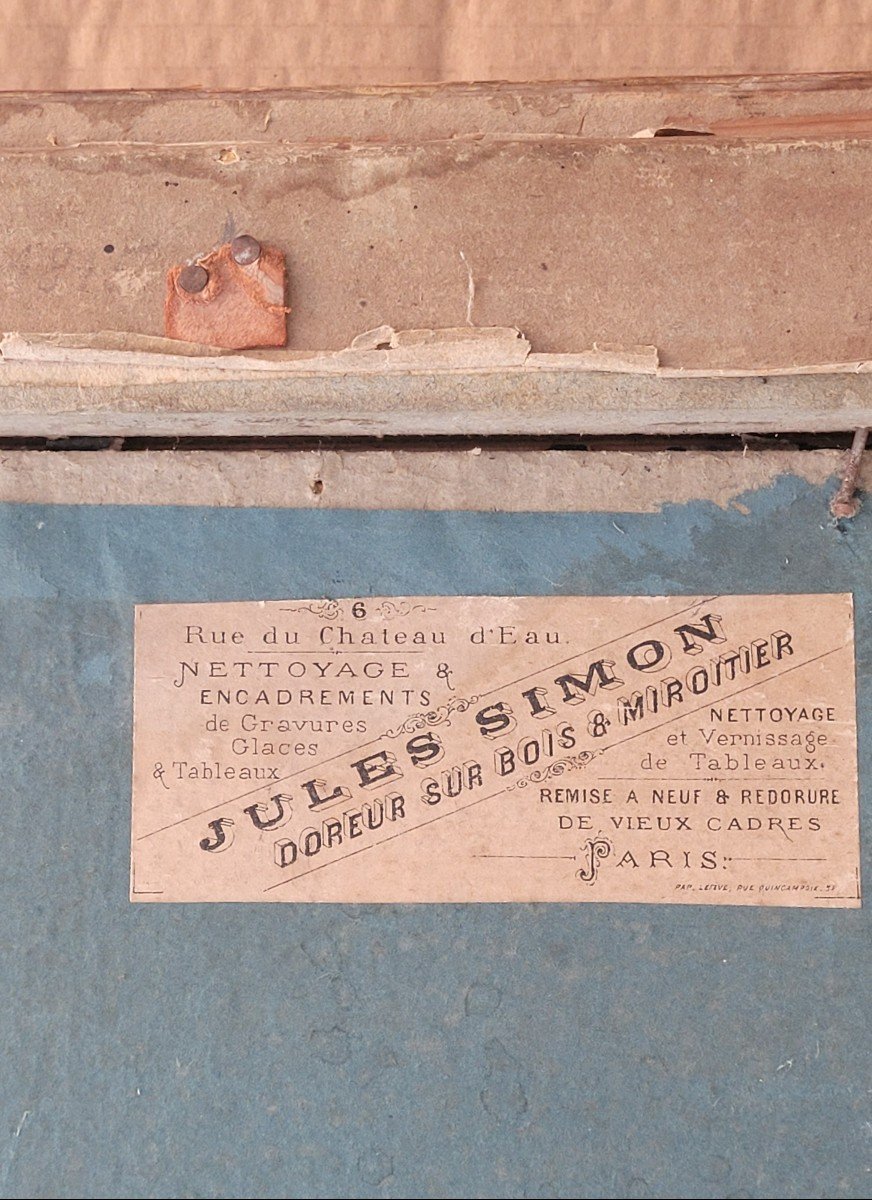 6
Rue du Chateau d'Eau.
NETTOYAGE &
ENCADREMENTS
de Gravures
Glaces
& Tableaux
JULES SIMON
DOREUR SUR BOIS & MIROITIER
NETTOYAGE
et Vernissage
de Tableaux.
REMISE A NEUF & REDORURE
DE VIEUX CADRES
PARIS
PAP. RUE QUINCAMPOIX.